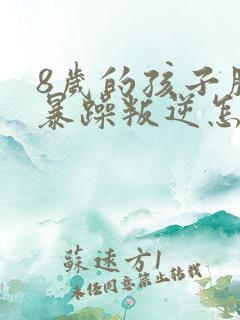 8岁的孩子脾
暴躁叛逆怎
蘇速方1
未经同意禁止转载